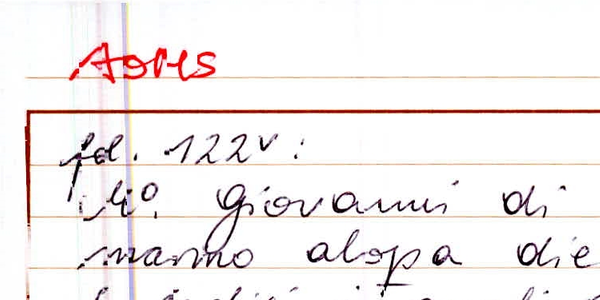 Aores
fol. 122v:
M.o Giovanni di
manno alopa die